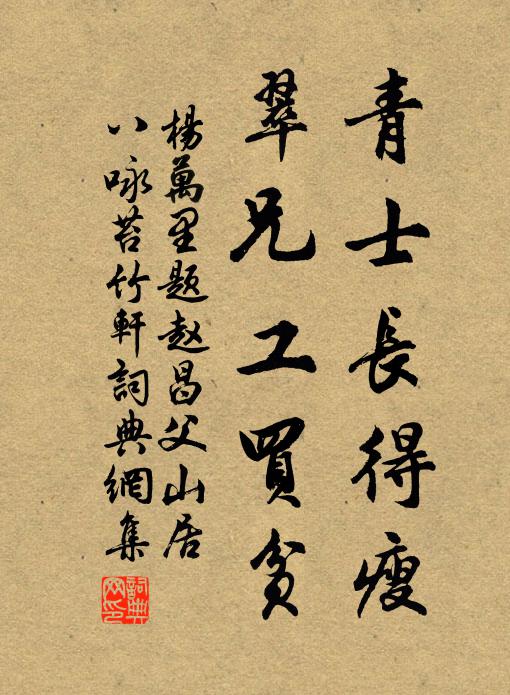 青士長得瘦
翠兄工買貧
楊萬里題赵昌父山居
八咏苔竹軒詞典網集
詞典网印